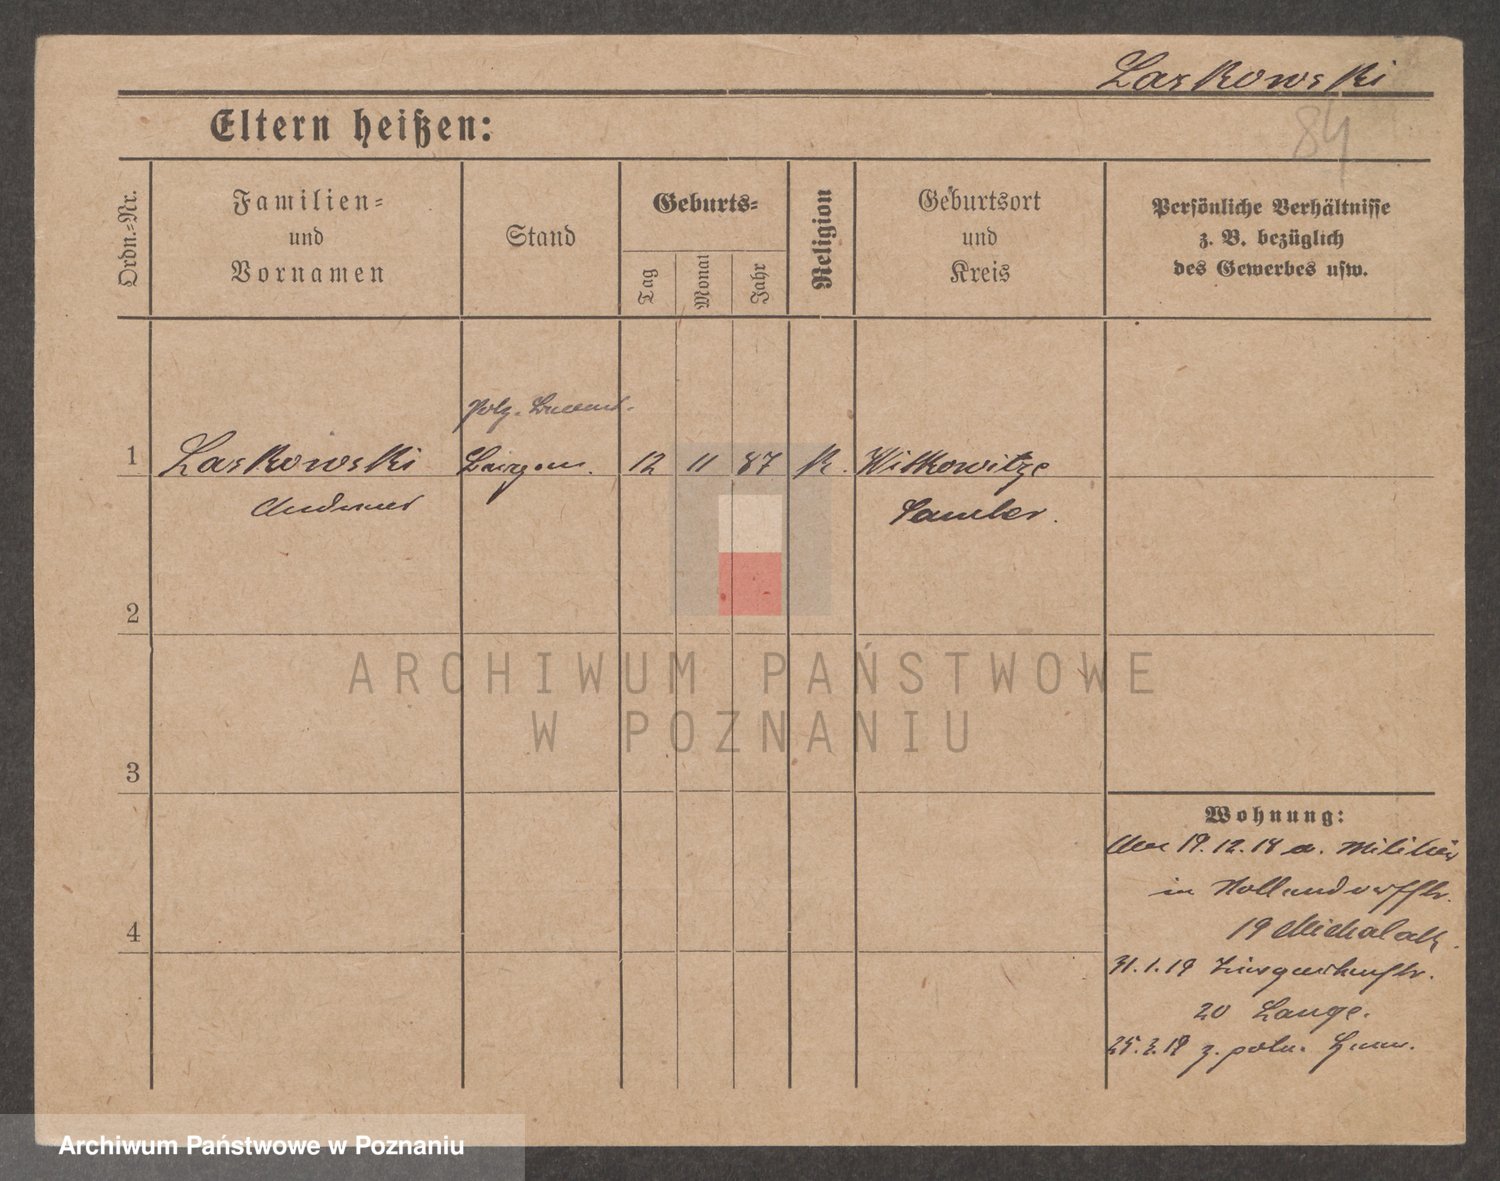 Laskowski
84
Eltern heißen:
Ordn.-Nr.
Familien-
und
Vornamen
Stand
Geburts-
Tag
Monat
Jahr
Religion
Geburtsort
und
Kreis
Persönliche Verhältnisse
z. B. bezüglich
des Gewerbes usw.
1 Laskowski 12 11 87 K. Witkowitze
Andreas Samter.
2
ARCHIWUM PAŃSTWOWE
W POZNANIU
3
Wohnung:
19.12.18 a. Militär
in
19 Michalak.
4
31.1.19
20 Lange.
25.3.19 z. poln.
Archiwum Państwowe w Poznaniu